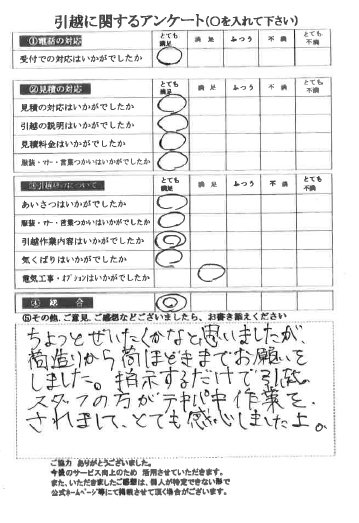 引越に関するアンケート(○を入れて下さい)
①電話の対応 とても満足 満足 ふつう 不満 とても不満
受付での対応はいかがでしたか
②見積の対応 とても満足 満足 ふつう 不満 とても不満
見積の対応はいかがでしたか
引越の説明はいかがでしたか
見積料金はいかがでしたか
服装・マナー・言葉つかいはいかがでしたか
とても満足 満足 ふつう 不満 とても不満
あいさつはいかがでしたか
服装・マナー・言葉つかいはいかがでしたか
引越作業内容はいかがでしたか
気くばりはいかがでしたか
電気工事・オプションはいかがでしたか
④ 総合
⑤その他、ご意見、ご感想などございましたら、お書き添えください
ちょっとぜいたくかなと思いましたが、
荷造りから荷ほどきまでお願いを
しました。指示するだけで引越
スタッフの方がテキパキ作業を
されまして、とても感心しましたよ。
ご協力 ありがとうございました。
今後のサービス向上のため 活用させていただきます。
また、いただきましたご感想は、個人が特定できない形で
公式ホームページ等にて掲載させて頂く場合がございます。